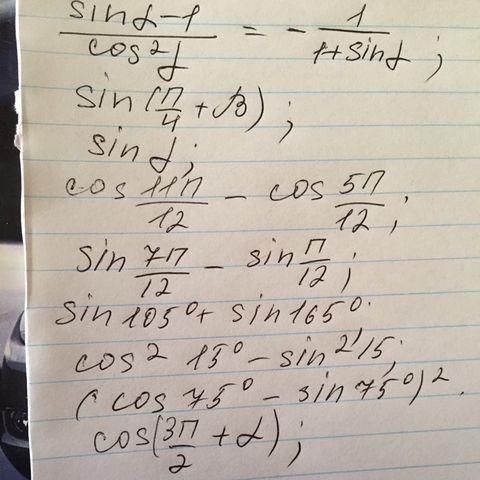 (sin α - 1)/(cos² α) = - 1/(1 + sin α);
sin(π/4 + β);
sin α;
cos 11π/12 - cos 5π/12;
sin 7π/12 - sin π/12;
sin 105° + sin 165°.
cos² 15° - sin² 15;
(cos 75° - sin 75°)².
cos(3π/2 + α);